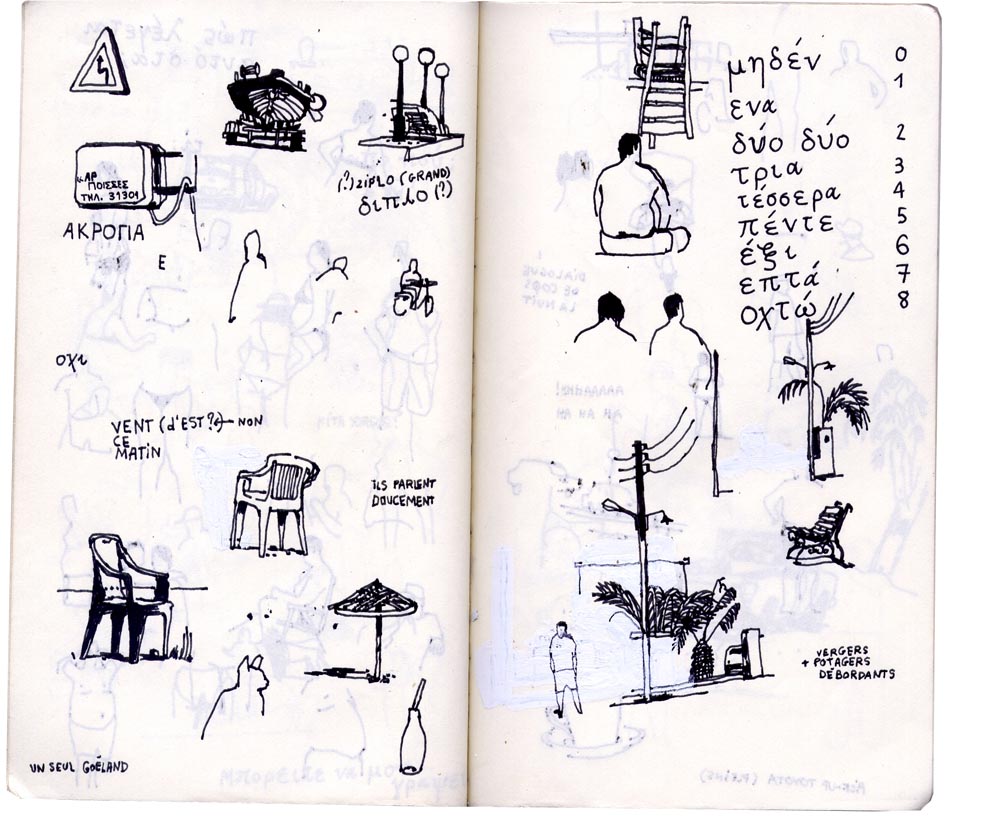 (?) ZIPLO (GRAND)
διπλο (?)
ΑΡ
ΠΟΙΣΣΕΣ
ΤΗΛ. 31301
ΑΚΡΟΓΙΑ
Ε
οχι
VENT (d'EST?) NON
CE
MATIN
ILS PARLENT
DOUCEMENT
UN SEUL GOÉLAND
μηδέν 0
ενα 1
δύο δύο 2
τρια 3
τέσσερα 4
πέντε 5
έξι 6
επτά 7
οχτώ 8
VERGERS
+ POTAGERS
DÉBORDANTS